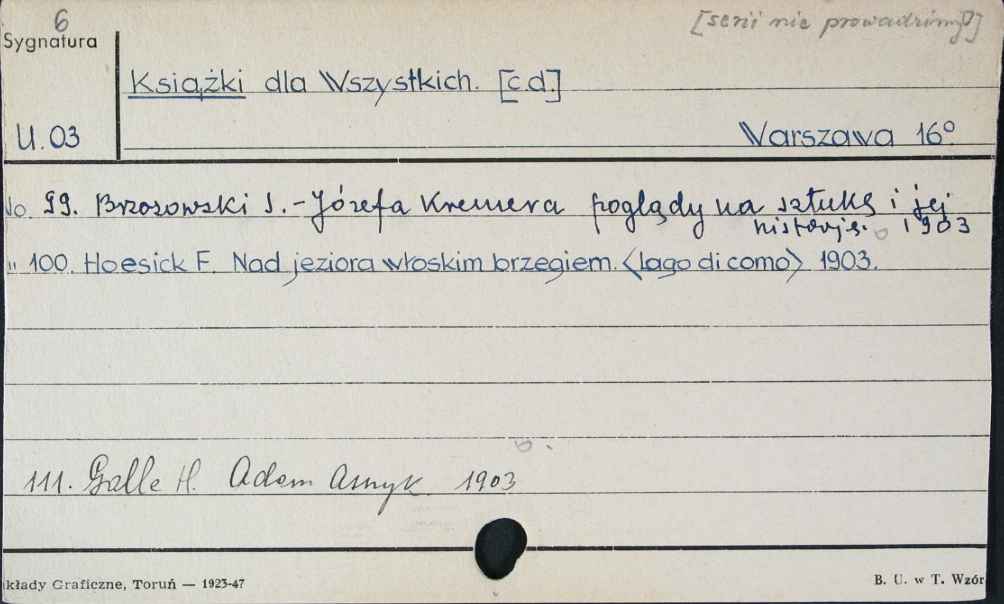 6 [serii nie prowadzimy]
Sygnatura
Książki dla Wszystkich. [c.d.]
U. 03 Warszawa 16°
No. 99. Brzozowski S. - Józefa Kremera poglądy na sztukę i jej
historję. 1903
" 100. Hoesick F. Nad jeziora włoskim brzegiem. <Lago di como> 1903.
111. Galle H. Adam Asnyk. 1903
kłady Graficzne, Toruń — 1923-47 B. U. w T. Wzór